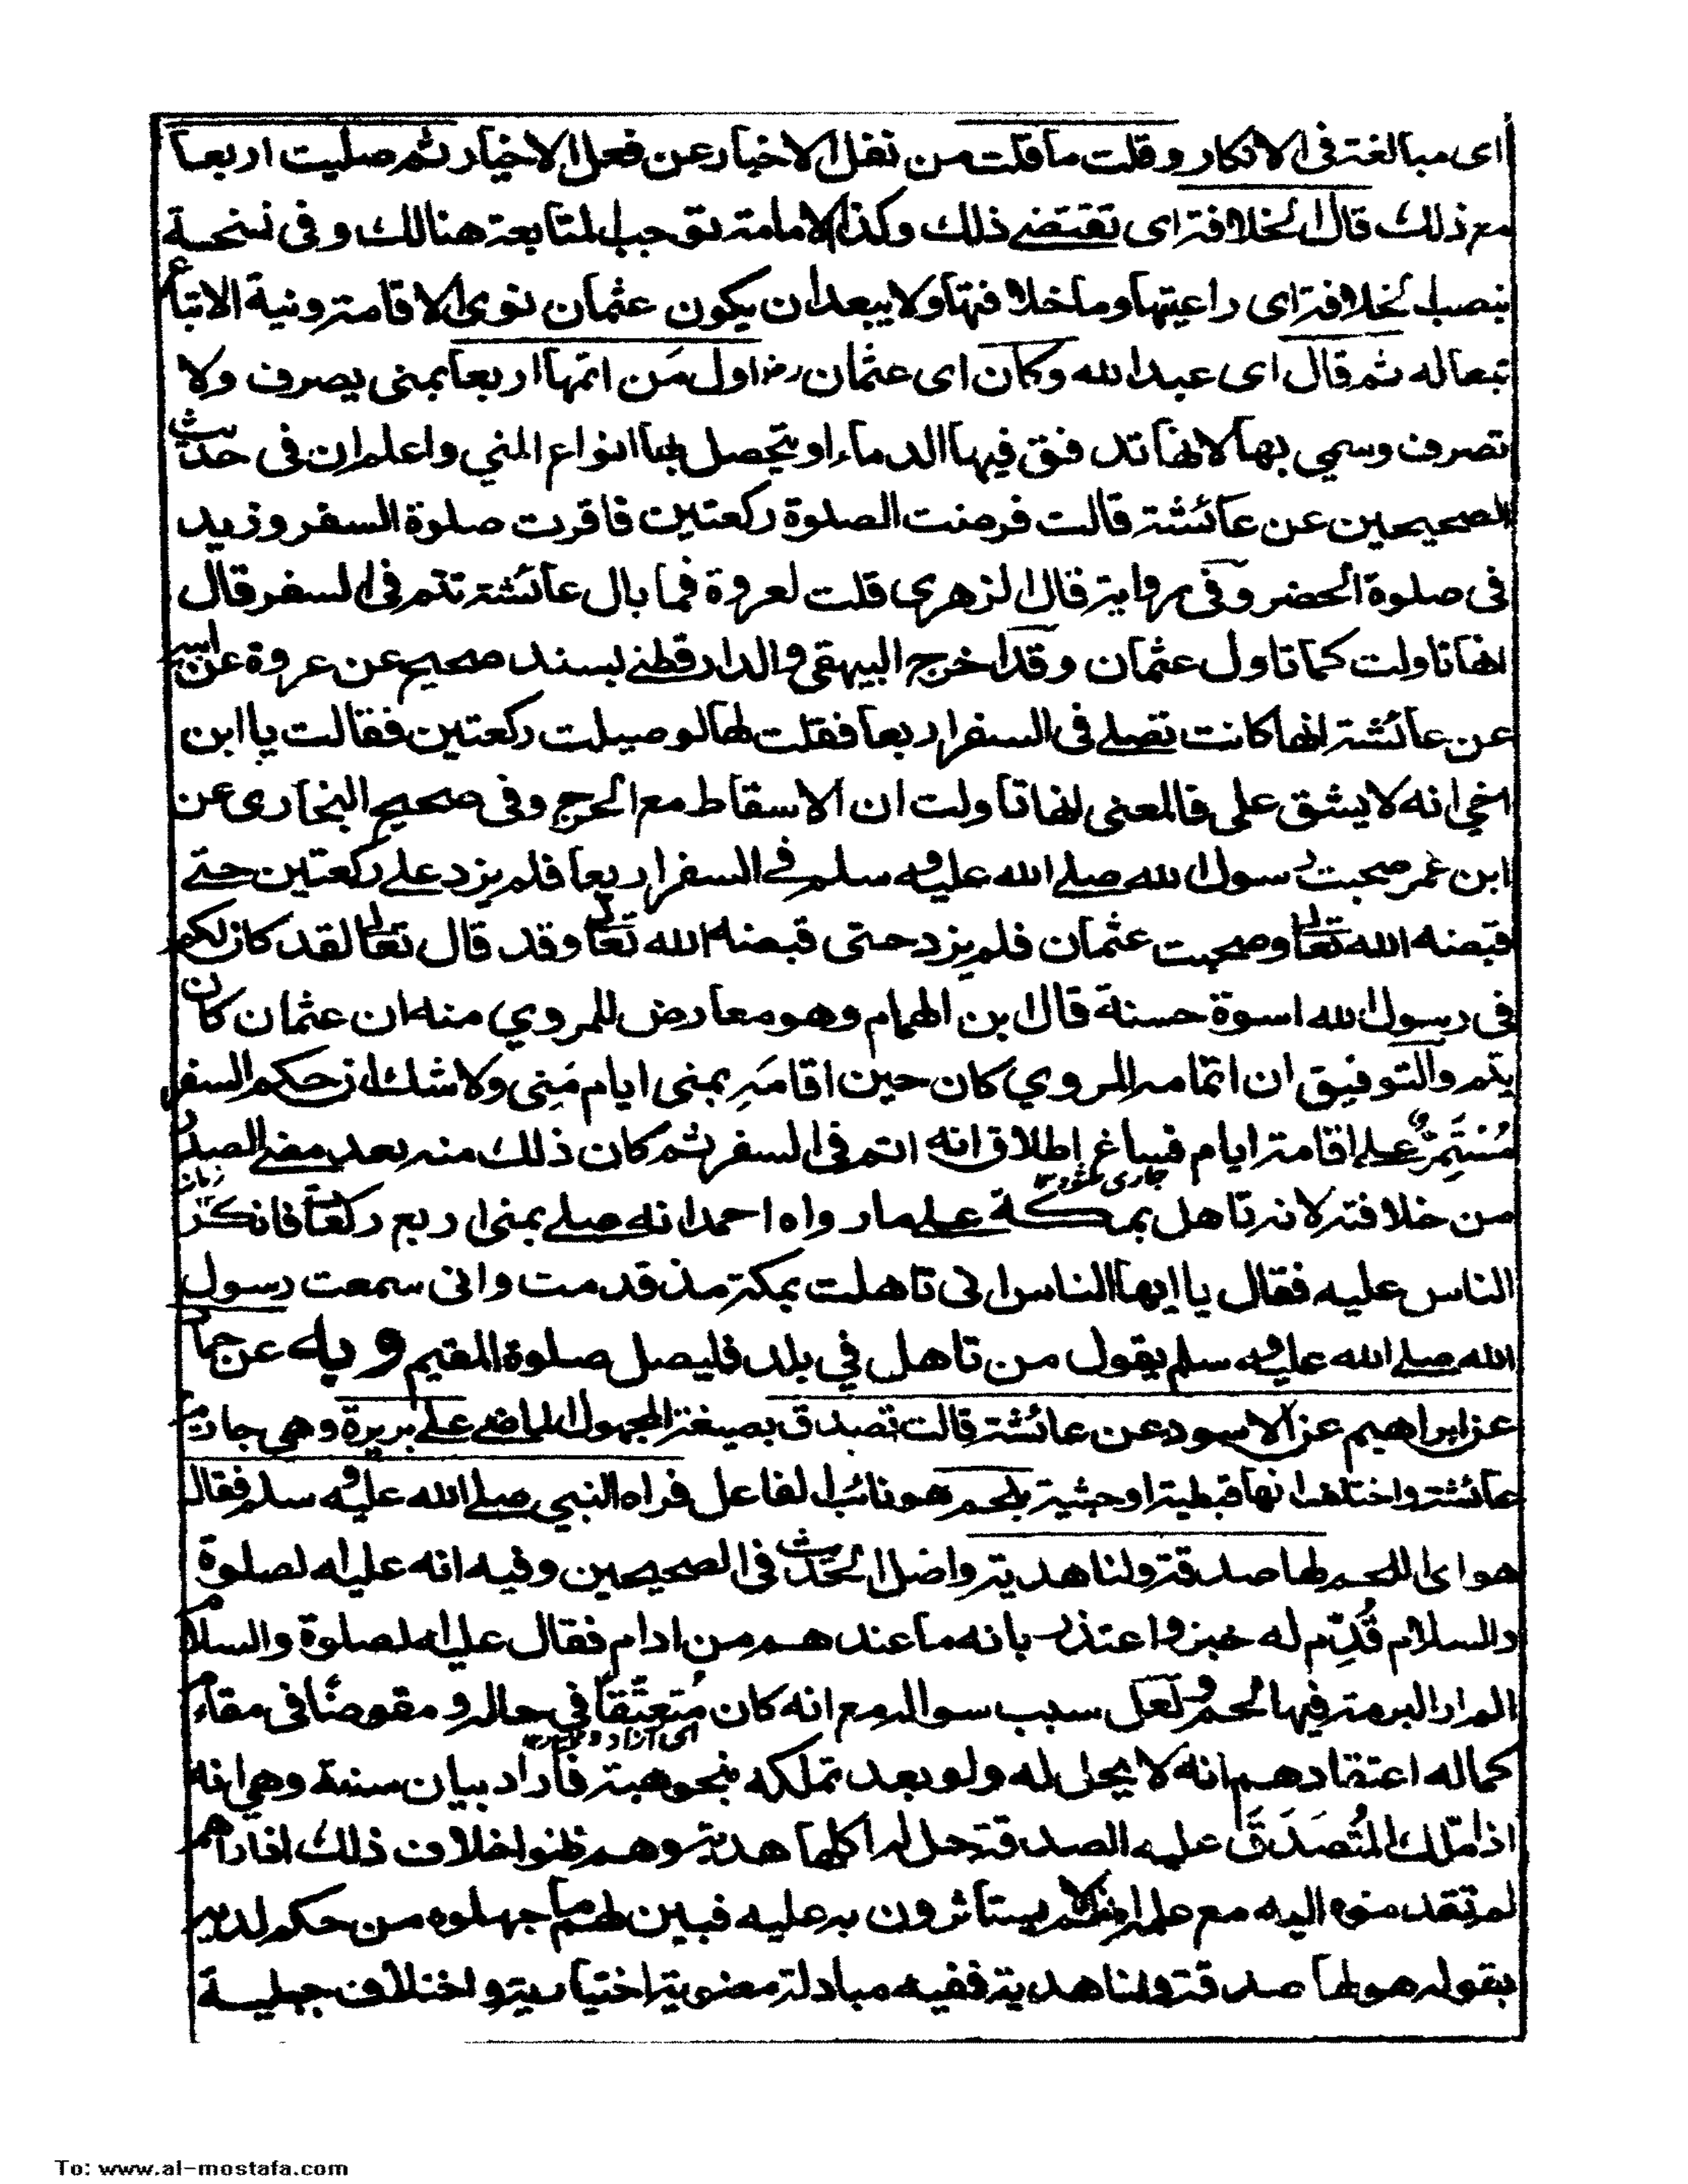 اى مبالغة فى الانكار وقلت ما قلت من نقل الاخبار عن فعل الاخيار ثم صليت اربعا
مع ذلك قال الخلافة اى تقتضے ذلك وكذا الامامة توجب المتابعة هنالك وفى نسخة
بنصب الخلافة اى راعيتها وما خلافتها ولا يبعد ان يكون عثمان نوى الاقامة ونية الاتباع
تبعا له ثم قال اى عبد الله وكان اى عثمان رض اول مَن اتمها اربعا بمنى يصرف ولا
تصرف وسمي بها لانها تدفق فيها الدماء او يتحصل بها انواع المني واعلم ان فى حديث
الصحيحين عن عائشة قالت فرضت الصلوة ركعتين فاقرت صلوة السفر وزيد
فى صلوة الحضر وفى رواية قال الزهرى قلت لعروة فما بال عائشة تتم فى السفر قال
انها تاولت كما تاول عثمان وقد اخرج البيهقى والدارقطنے بسند صحيح عن عروة عن ابيه
عن عائشة انها كانت تصلے فى السفر اربعا فقلت لها لو صليت ركعتين فقالت يا ابن
اخي انه لا يشق على فالمعنى انها تاولت ان الاسقاط مع الحرج وفى صحيح البخارى عن
ابن عمر صحبت رسول الله صلے الله عليه وسلم فے السفر اربعا فلم يزد علے ركعتين حتے
قبضه الله تعالى وصحبت عثمان فلم يزد حتى قبضه الله تعالى وقد قال تعالى لقد كان لكم
فى رسول الله اسوة حسنة قال ابن الهمام وهو معارض للمروي منه ان عثمان كان
يتم والتوفيق ان اتمامه المروي كان حين اقامَهِ بمنى ايام مَنِى ولا شك ان حكم السفر
مُنْسَحِبٌ علے اقامة ايام فساغ اطلاق انه اتم فى السفر ثم كان ذلك منه بعد مضے الصدر
من خلافته لانه تاهل بمكة علے ما رواه احمد انه صلے بمنى اربع ركعات فانكر
الناس عليه فقال يا ايها الناس انى تاهلت بمكة مذ قدمت وانى سمعت رسول
الله صلے الله عليه وسلم يقول من تاهل في بلد فليصل صلوة المقيم وبه عن حماد
عن ابراهيم عن الاسود عن عائشة قالت تصدق بصيغة المجهول الماضے علے بريرة وهي جارية
عائشة واختلف انها قبطية او حبشية بلحم هو نائب الفاعل فراه النبي صلے الله عليه وسلم فقال
هو اى اللحم لها صدقة ولنا هدية واصل الحديث فى الصحيحين وفيه انه عليه الصلوة
والسلام قُدِّم له خبز واعتذر بانه ما عندهم من ادام فقال عليه الصلوة والسلام
الم ار البرمة فيها لحم ولعل سبب سواله مع انه كان مُتعفّفا في حاله و مفوضًا فى مقام
كماله اعتقادهم انه لا يحل له ولو بعد تملكه بنحو هبة فاراد بيان سنة وهى انه
اذا ملك المُتَصَدَقَ عليه الصدقة حل له اكلها هدية وهم ظنوا خلاف ذلك اذ اراهم
لم تقدموه اليه مع علمه انهم لا يستاثرون به عليه فبين لهم ما جهلوه من حكم لديه
بقوله هو لها صدقة ولنا هدية ففيه مبادلة معنوية اختيارية واختلاف جهلية
To: www.al-mostafa.com